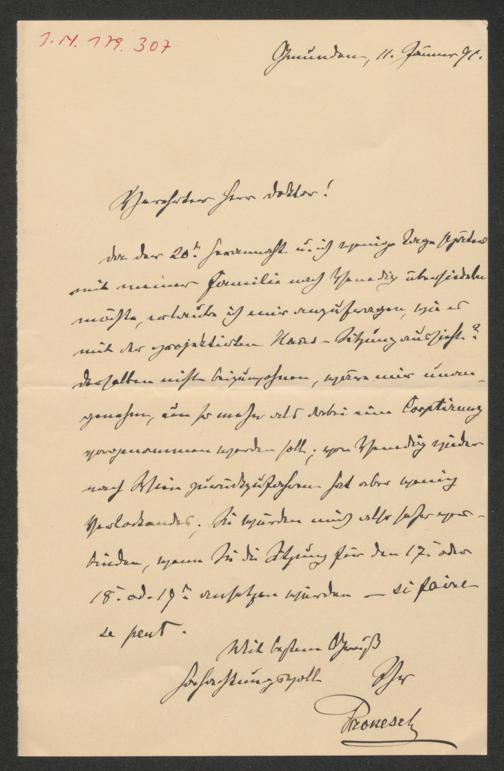 I.N. 179.307
Gmunden, 11. Jänner 91.
Verehrter Herr Doktor!
Da der 20te herannaht u. ich wenige Tage später
mit meiner Familie nach Venedig übersiedeln
möchte, erlaube ich mir anzufragen, wie es
mit der projektirten Haus-Sitzung aussieht?
Derselben nicht beizuwohnen, wäre mir unan-
genehm, um so mehr als dabei eine Cooptirung
vorgenommen werden soll; von Venedig wieder
nach Wien zurückzufahren hat aber wenig
Verlockendes. Sie würden mich also sehr ver-
binden, wenn Sie die Sitzung für den 17. oder
18. od. 19ten ansetzen würden — si faire
se peut.
Mit bestem Gruß
hochachtungsvoll Ihr